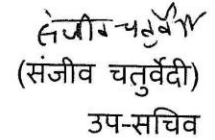 संजीव चतुर्वेदी
(संजीव चतुर्वेदी)
उप-सचिव